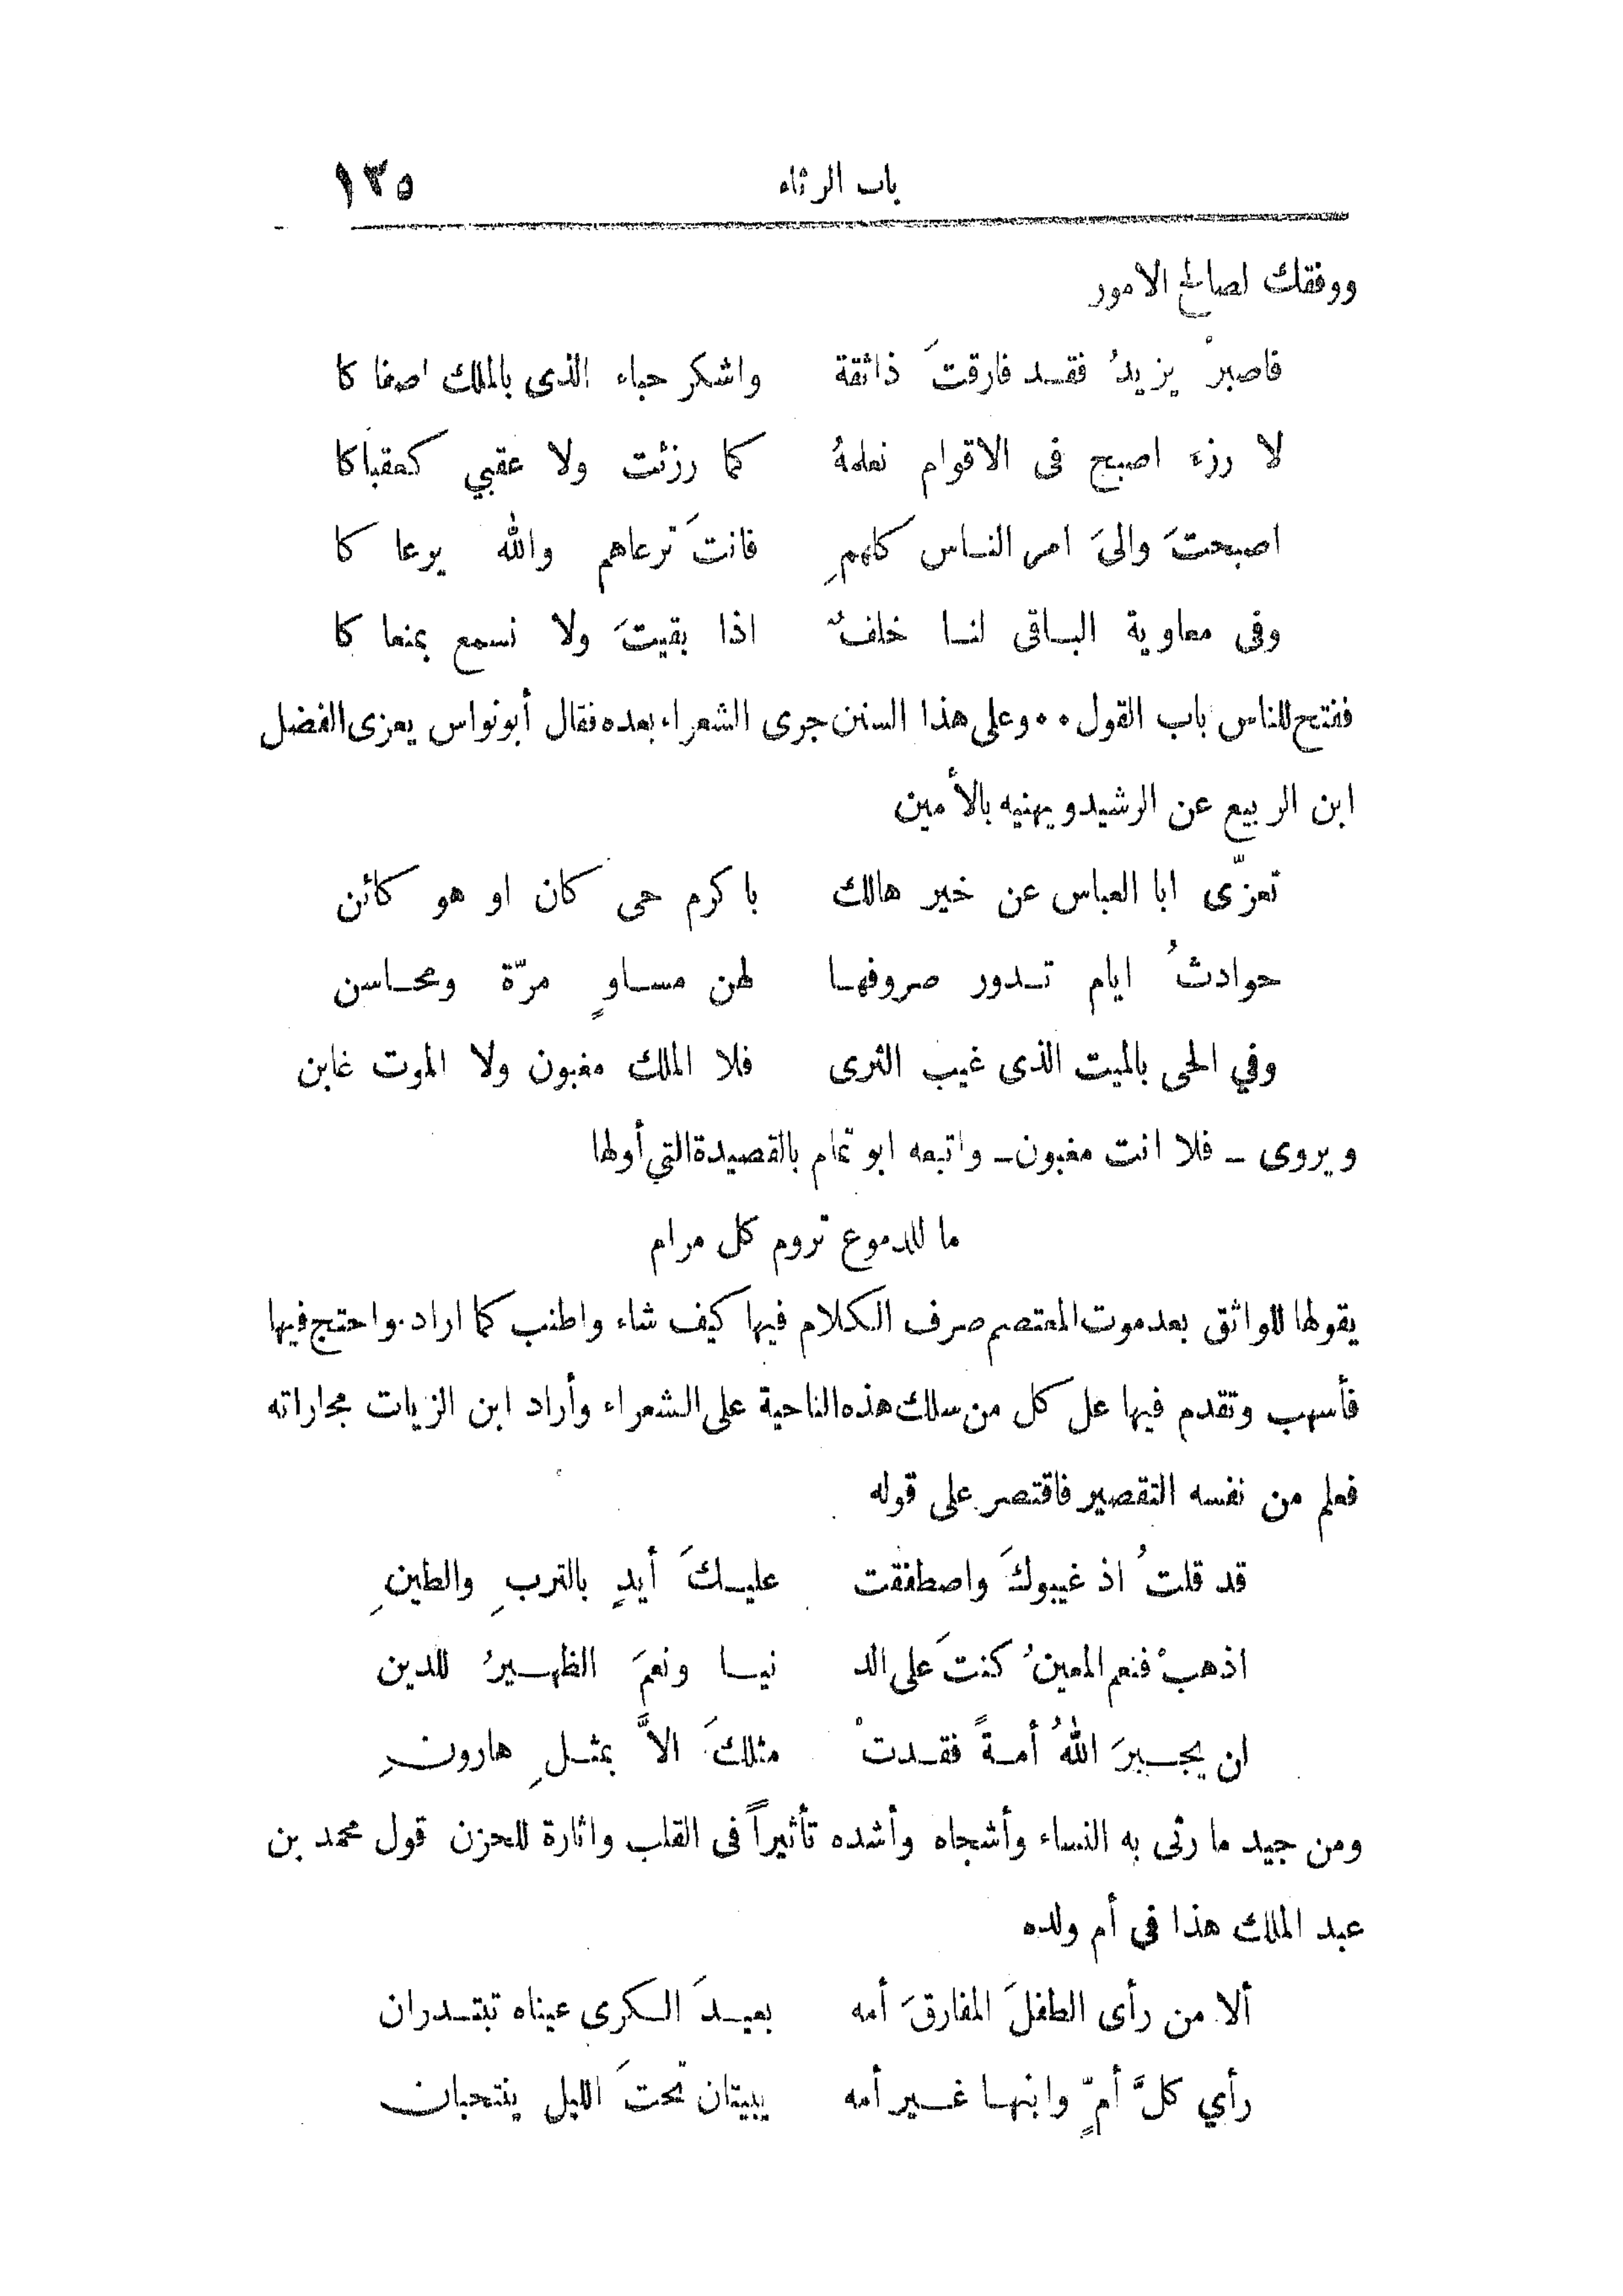 باب الرثاء ١٣٥
ووفقك لصالح الامور
فاصبرْ يزيدُ فقد فارقتَ ذاثقة واشكر حباء الذى بالملك اصفاكا
لا رزء اصبح فى الاقوام نعلمهُ كما رزئت ولا عقبي كعقباكا
اصبحتَ والىَ امر الناس كلهمِ فانتَ ترعاهم والله يرعاكا
وفى معاوية الباقى لنا خلفٌ اذا بقيتَ ولا نسمع بمنعاكا
ففتح للناس باب القول •• وعلى هذا السنن جرى الشعراء بعده فقال أبونواس يعزى الفضل
ابن الربيع عن الرشيد ويهنيه بالأمين
تعزّى ابا العباس عن خير هالك باكرم حى كان او هو كائن
حوادثُ ايام تدور صروفها لهن مساوٍ مرّة ومحاسن
وفي الحى بالميت الذى غيب الثرى فلا الملك مغبون ولا الموت غابن
ويروى ـ فلا انت مغبون ـ واتبعه ابو تمام بالقصيدة التي أولها
ما للدموع تروم كل مرام
يقولها للواثق بعد موت المعتصم صرف الكلام فيها كيف شاء واطنب كما اراد. واحتج فيها
فأسهب وتقدم فيها عل كل من سلك هذه الناحية على الشعراء وأراد ابن الزيات مجاراته
فعلم من نفسه التقصير فاقتصر على قوله
قد قلتُ اذ غيبوكَ واصطفقت عليكَ أيدٍ بالتربِ والطينِ
اذهبْ فنعم المعينُ كنتَ على الد نيا ونعمَ الظهيرُ للدين
ان يجبرَ اللهُ أمةً فقدتْ مثلكَ الاَّ بمثلِ هارونِ
ومن جيد ما رثى به النساء وأشجاه وأشده تأثيراً فى القلب واثارة للحزن قول محمد بن
عبد الملك هذا فى أم ولده
ألا من رأى الطفلَ المفارقَ أمه بعيدَ الكرى عيناه تبتدران
رأي كلَّ أمٍّ وابنها غير أمه يبيتان تحتَ الليل ينتحبان